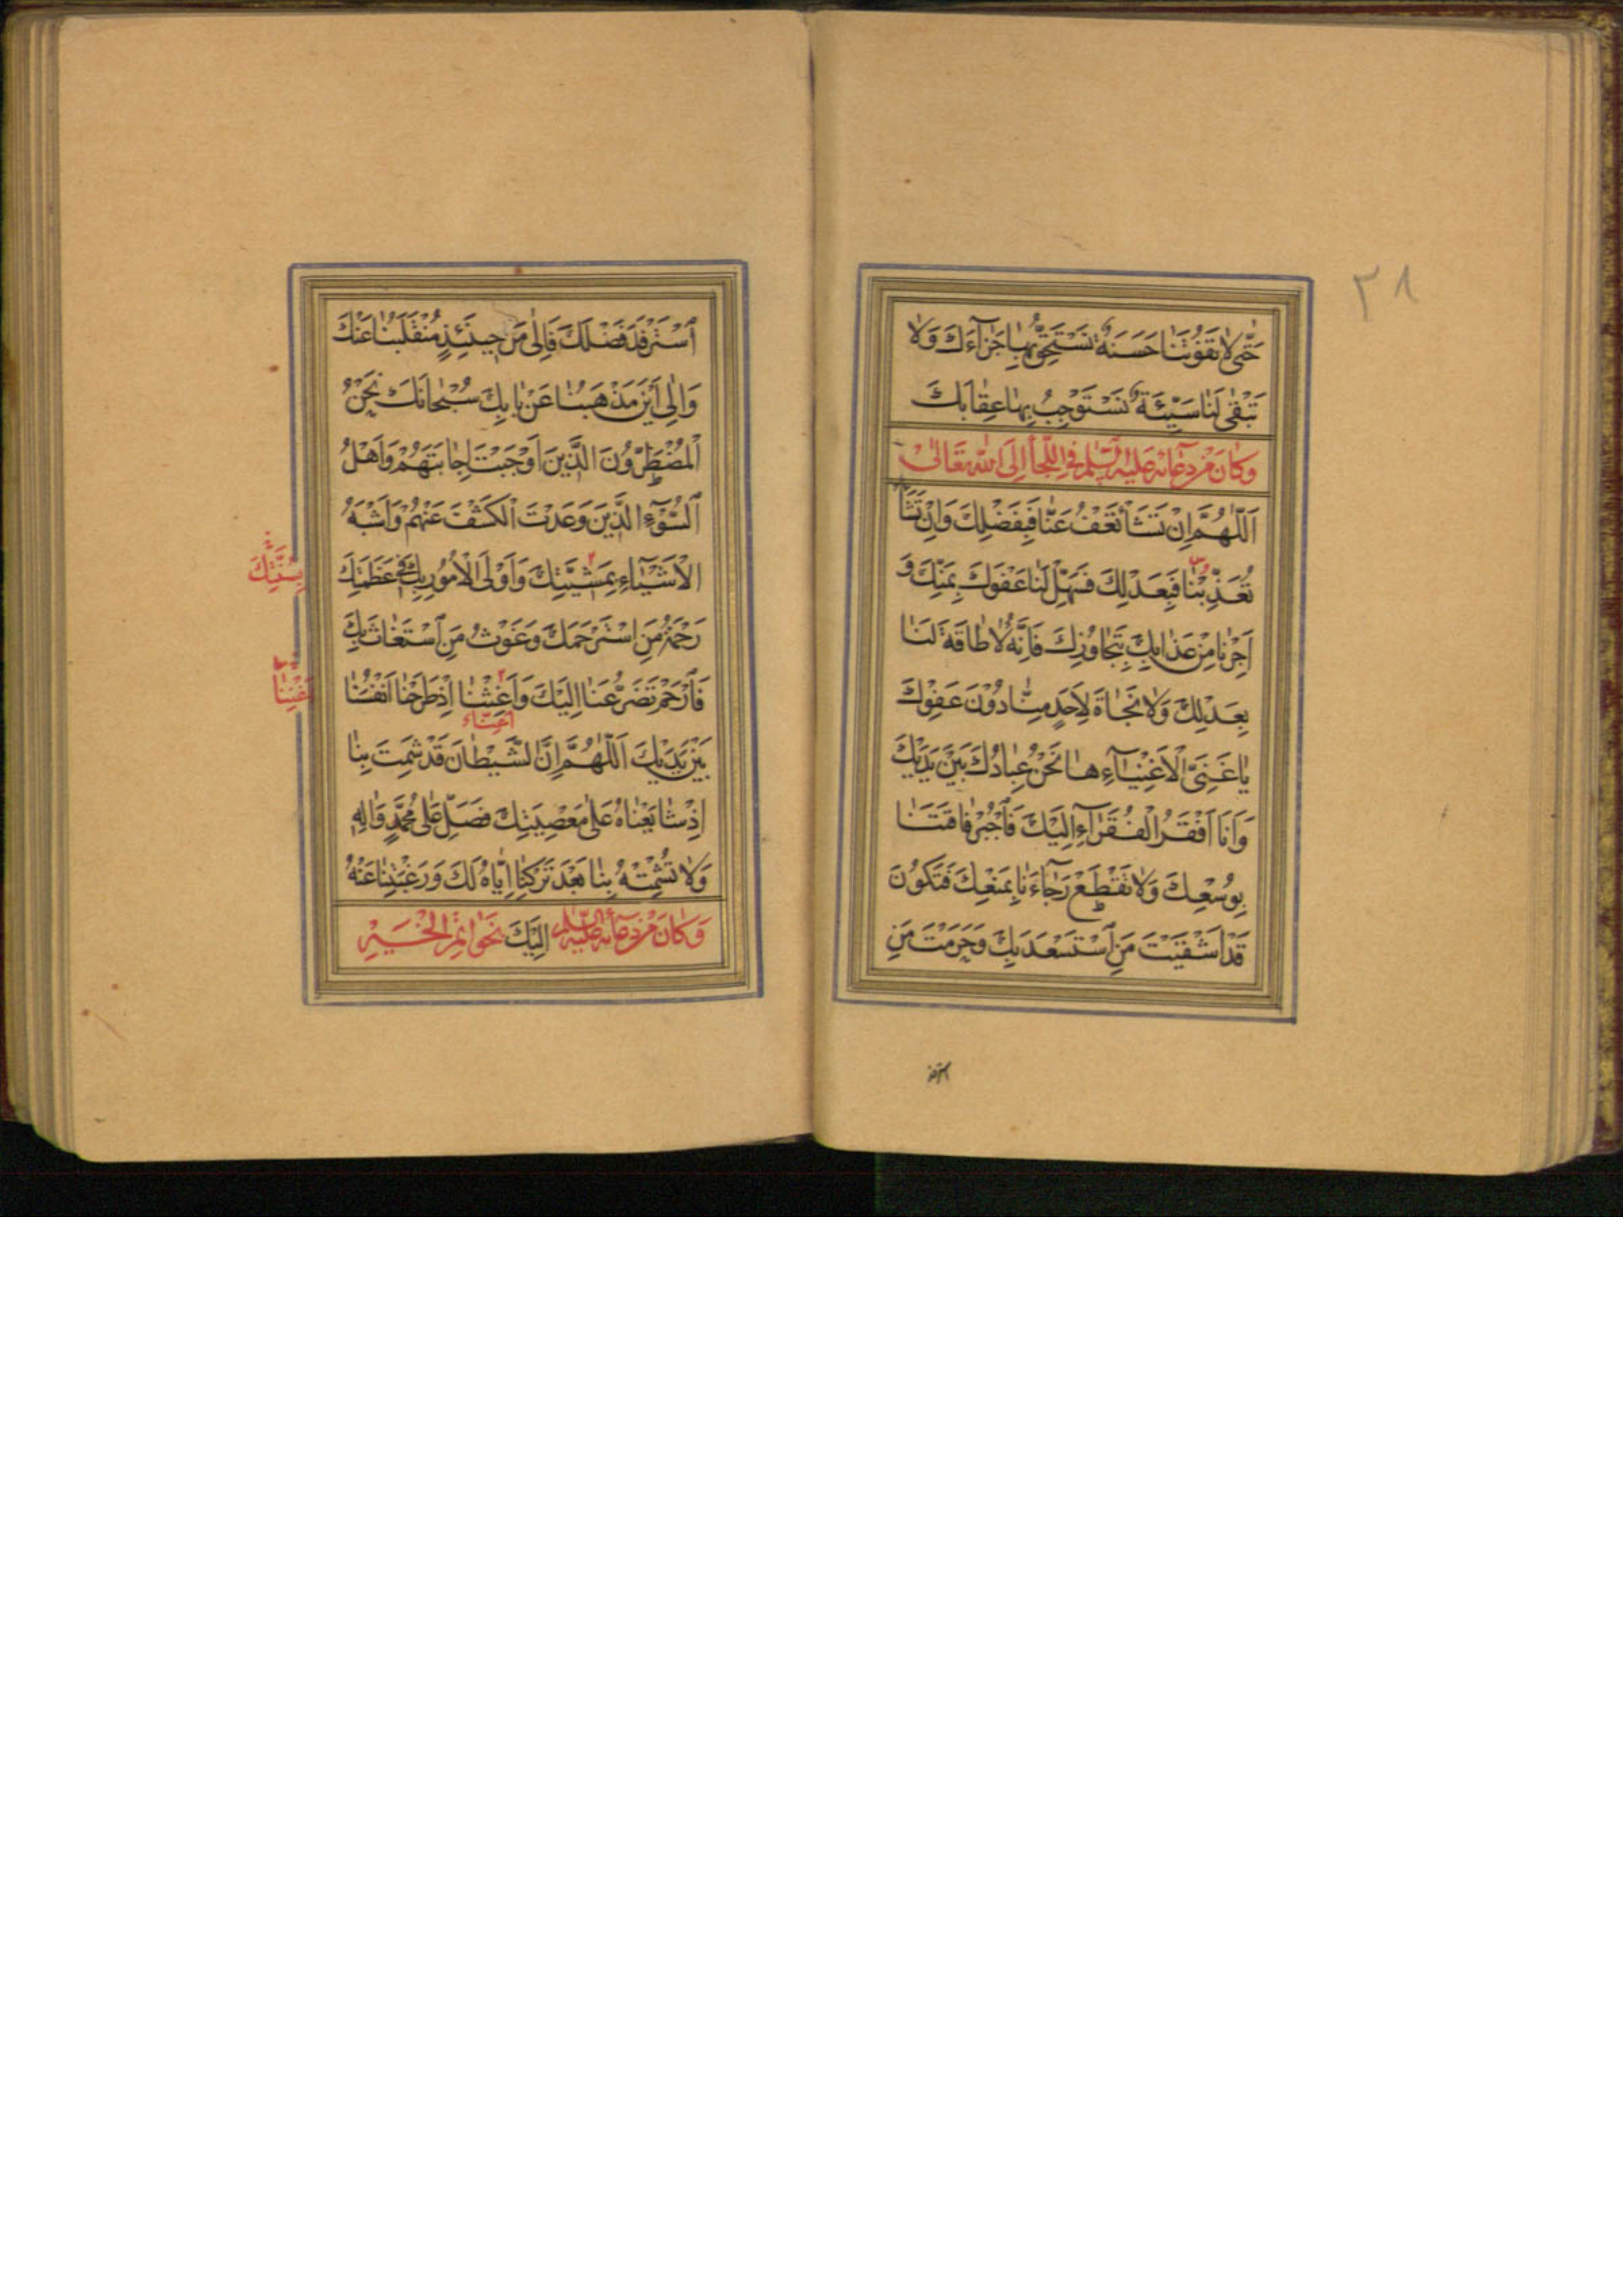 ٣٨
حَتّٰى لَا تَفُوتَنَا حَسَنَةٌ نَسْتَحِقُّ بِهَا جَزَآءَكَ وَلَا
تَبْقٰى لَنَا سَيِّئَةٌ نَسْتَوْجِبُ بِهَا عِقَابَكَ
وَكَانَ مِنْ دُعَآئِهِ عَلَيْهِ السَّلَمُ فِي اللَّجَأِ إِلَى اللهِ تَعَالىٰ
اَللّٰهُمَّ اِنْ تَشَأْ تَعْفُ عَنَّا فَبِفَضْلِكَ وَاِنْ تَشَأْ
تُعَذِّبْنَا فَبِعَدْلِكَ فَسَهِّلْ لَنَا عَفْوَكَ بِمَنِّكَ وَ
اَجِرْنَا مِنْ عَذَابِكَ بِتَجَاوُزِكَ فَاِنَّهُ لَا طَاقَةَ لَنَا
بِعَدْلِكَ وَلَا نَجَاةَ لِاَحَدٍ مِنَّا دُوْنَ عَفْوِكَ
يَا غَنِيَّ الْاَغْنِيَآءِ هَا نَحْنُ عِبَادُكَ بَيْنَ يَدَيْكَ
وَاَنَا اَفْقَرُ الْفُقَرَآءِ اِلَيْكَ فَاجْبُرْ فَاقَتَنَا
بِوُسْعِكَ وَلَا تَقْطَعْ رَجَآءَنَا بِمَنْعِكَ فَتَكُوْنَ
قَدْ اَشْقَيْتَ مَنِ اسْتَسْعَدَ بِكَ وَحَرَمْتَ مَنِ
استرفد
اسْتَرْفَدَ فَضْلَكَ فَاِلٰى مَنْ حِينَئِذٍ مُنْقَلَبُنَا عَنْكَ
وَاِلٰى اَيْنَ مَذْهَبُنَا عَنْ بَابِكَ سُبْحَانَكَ نَحْنُ
الْمُضْطَرُّوْنَ الَّذِيْنَ اَوْجَبْتَ اِجَابَتَهُمْ وَاَهْلُ
السُّوْٓءِ الَّذِيْنَ وَعَدْتَ الْكَشْفَ عَنْهُمْ وَاَشْبَهُ
الْاَشْيَآءِ بِمَشِيَّتِكَ وَاَوْلَى الْاُمُوْرِ بِكَ فِي عَظَمَتِكَ
رَحْمَةُ مَنِ اسْتَرْحَمَكَ وَغَوْثُ مَنِ اسْتَغَاثَ بِكَ
فَارْحَمْ تَضَرُّعَنَا اِلَيْكَ وَاَغِثْنَا اِذْ طَرَحْنَا اَنْفُسَنَا
بَيْنَ يَدَيْكَ اَللّٰهُمَّ اِنَّ الشَّيْطَانَ قَدْ شَمِتَ بِنَا
اِذْ شَايَعْنَاهُ عَلٰى مَعْصِيَتِكَ فَصَلِّ عَلٰى مُحَمَّدٍ وَاٰلِهِ
وَلَا تُشْمِتْهُ بِنَا بَعْدَ تَرْكِنَا اِيَّاهُ لَكَ وَرَغْبَتِنَا عَنْهُ
وَكَانَ مِنْ دُعَآئِهِ عَلَيْهِ السَّلَمُ اِلَيْكَ بِخَوَاتِمِ الْخَيْرِ
بِسُنَّتِكَ